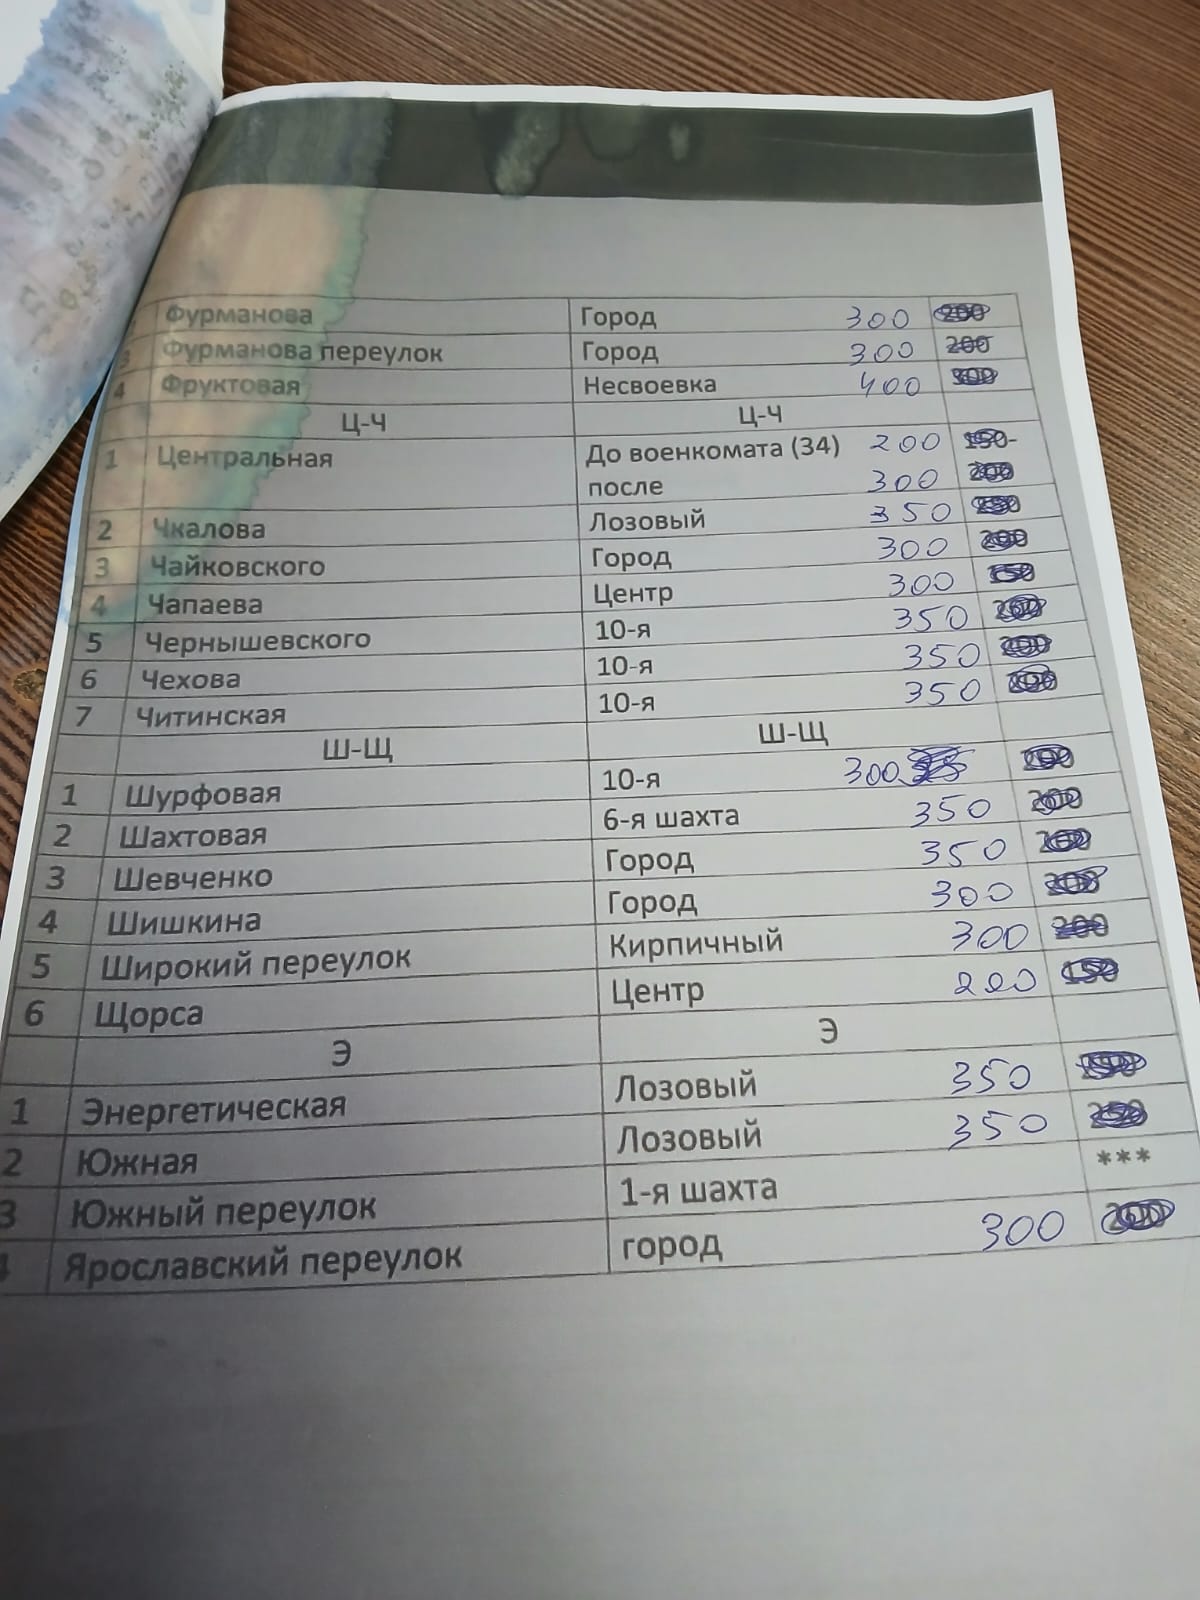 Фурманова Город 300 200
3 Фурманова переулок Город 300 200
4 Фруктовая Несвоевка 400 300
Ц-Ч Ц-Ч
1 Центральная До военкомата (34) 200 150-
после 300 200
2 Чкалова Лозовый 350 250
3 Чайковского Город 300 200
4 Чапаева Центр 300 150
5 Чернышевского 10-я 350 200
6 Чехова 10-я 350 200
7 Читинская 10-я 350 200
Ш-Щ Ш-Щ
1 Шурфовая 10-я 300 200
2 Шахтовая 6-я шахта 350 200
3 Шевченко Город 350 200
4 Шишкина Город 300 200
5 Широкий переулок Кирпичный 300 200
6 Щорса Центр 200 150
Э Э
1 Энергетическая Лозовый 350
2 Южная Лозовый 350 250
3 Южный переулок 1-я шахта ***
4 Ярославский переулок город 300 200